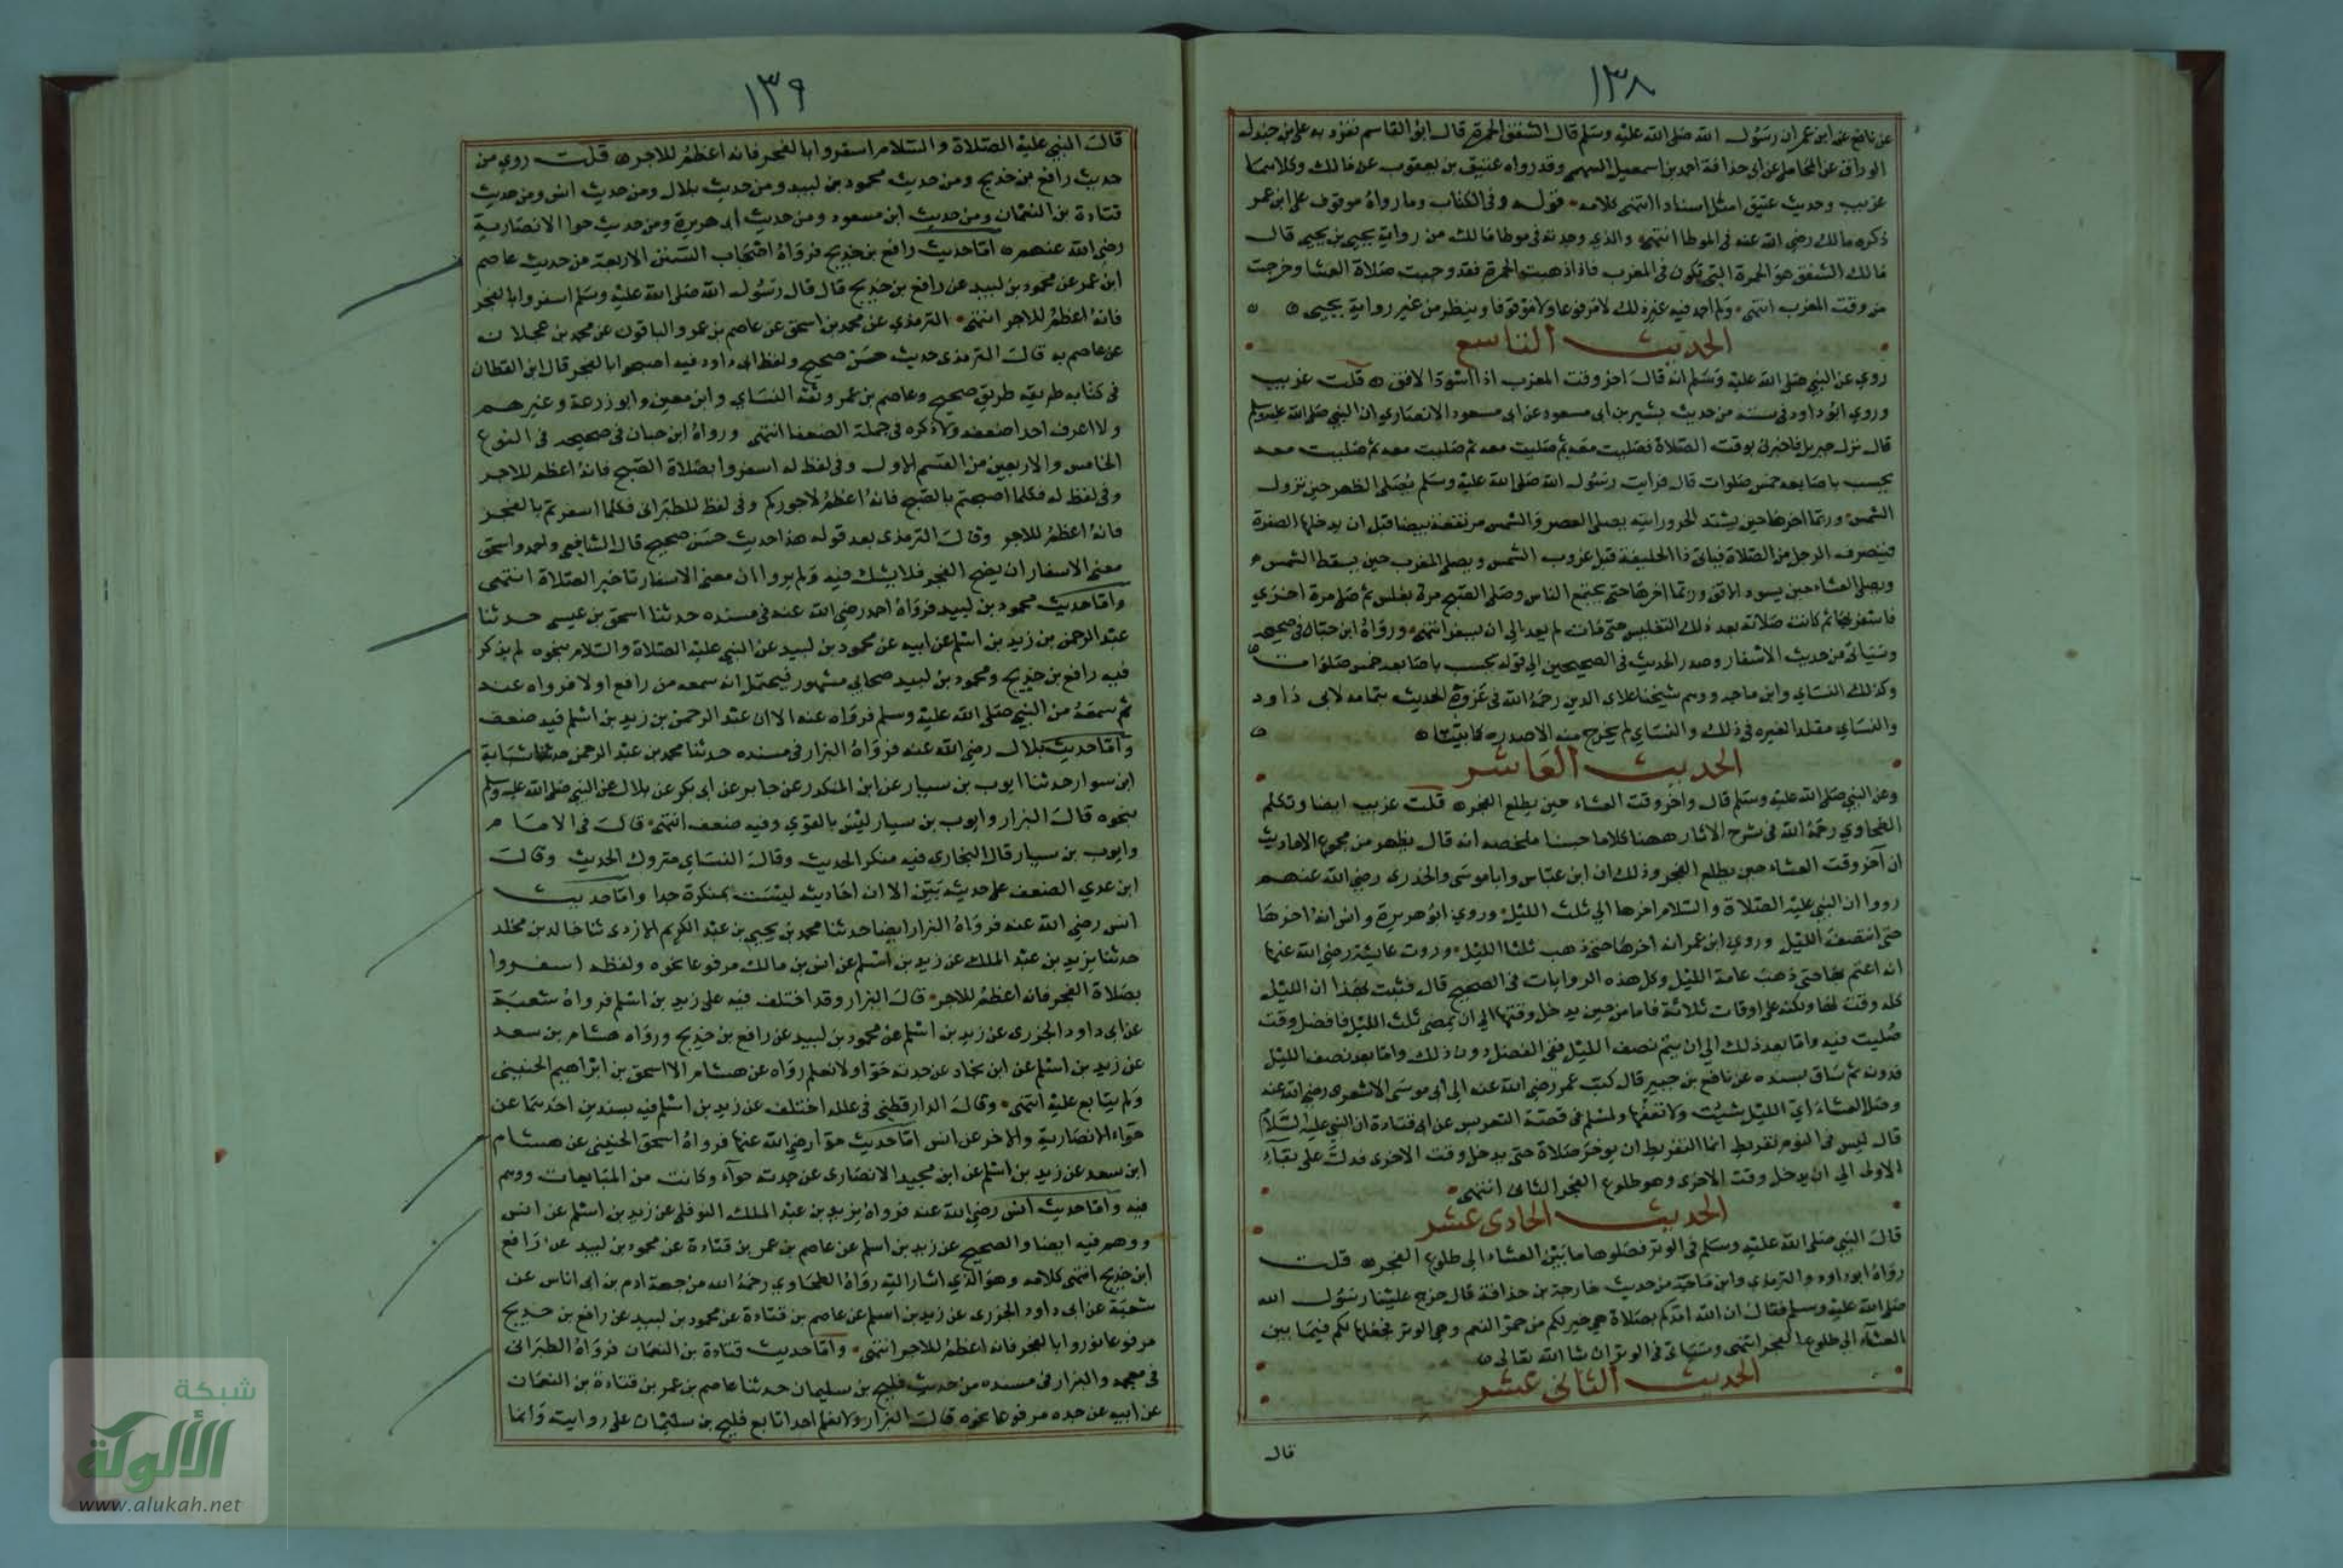 ١٣٨
عن نافع عن ابن عمر ان رسول الله صلى الله عليه وسلم قال الشفق الحمرة قال ابو القاسم تفرد به على بن جندل
الوراق عن المحاملى عن ابى حذافة احمد بن اسمعيل السهمى وقد رواه عتيق بن يعقوب عن مالك وكلاهما
غريب وحديث عتيق امثل اسنادا انتهى كلامه قوله وفى الكتاب وما رواه موقوف على ابن عمر
ذكره مالك رضى الله عنه فى الموطا انتهى والذي وجدته فى موطا مالك من رواية يحيى بن يحيى قال
مالك الشفق هو الحمرة التى تكون فى المغرب فاذا ذهبت الحمرة فقد وجبت صلاة العشا وخرجت
من وقت المغرب انتهى ولم اجد فيه غير ذلك لا مرفوعا ولا موقوفا وينظر من غير رواية يحيى
الحديث التاسع
روي عن النبي صلى الله عليه وسلم انه قال اخر وقت المغرب اذا اسود الافق قلت غريب
وروي ابو داود فى سننه من حديث بشير بن ابى مسعود عن ابى مسعود الانصاري ان النبي صلى الله عليه وسلم
قال نزل جبريل فاخبرنى بوقت الصلاة فصليت معه ثم صليت معه ثم صليت معه ثم صليت معه
يحسب باصابعه خمس صلوات قال فرايت رسول الله صلى الله عليه وسلم يصلى الظهر حين تزول
الشمس وربما اخرها حين يشتد الحر ورايته يصلى العصر والشمس مرتفعة بيضا قبل ان يدخلها الصفرة
فينصرف الرجل من الصلاة فياتى ذا الحليفة قبل غروب الشمس ويصلى المغرب حين يسقط الشمس
ويصلى العشاء حين يسود الافق وربما اخرها حتى يجتمع الناس وصلى الصبح مرة بغلس ثم صلى مرة اخرى
فاسفر بها ثم كانت صلاته بعد ذلك التغليس حتى مات لم يعد الى ان يسفر انتهى ورواه ابن حبان فى صحيحه
وسياتى من حديث الاسفار وصدر الحديث فى الصحيحين الى قوله يحسب باصابعه خمس صلوات
وكذلك النساي وابن ماجه ووهم شيخنا علاى الدين رحمه الله فى عزوه الحديث بتمامه لابى داود
والنساي مقلدا لغيره فى ذلك والنساي لم يخرج منه الا صدره كما بيناه
الحديث العاشر
وعن النبي صلى الله عليه وسلم قال واخر وقت العشاء حين يطلع الفجر قلت غريب ايضا وتكلم
الطحاوي رحمه الله فى شرح الاثار ههنا كلاما حسنا ملخصه انه قال يظهر من مجموع الاحاديث
ان آخر وقت العشاء حين يطلع الفجر وذلك ان ابن عباس وابا موسى والخدرى رضى الله عنهم
رووا ان النبي عليه الصلاة والسلام اخرها الي ثلث الليل وروي ابو هريرة وانس انه اخرها
حتى انتصف الليل وروي ابن عمر انه اخرها حتى ذهب ثلثا الليل وروت عايشة رضى الله عنها
انه اعتم بها حتى ذهب عامة الليل وكل هذه الروايات فى الصحيح قال فثبت بهذا ان الليل
كله وقت لها ولكنه على اوقات ثلاثة فاما من حين يدخل وقتها الي ان يمضى ثلث الليل فافضل وقت
صليت فيه واما بعد ذلك الي ان يتم نصف الليل ففى الفضل دون ذلك واما بعد نصف الليل
فدونه ثم ساق بسنده عن نافع بن جبير قال كتب عمر رضى الله عنه الى ابى موسى الاشعرى رضى الله عنه
وصل العشاء اي الليل شئت ولا تغفلها ولمسلم فى قصة التعريس عن ابى قتادة ان النبي عليه السلام
قال ليس فى النوم تفريط انما التفريط ان يوخر صلاة حتى يدخل وقت الاخرى فدل على بقاء
الاولى الي ان يدخل وقت الاخرى وهو طلوع الفجر الثانى انتهى
الحديث الحادى عشر
قال النبي صلى الله عليه وسلم فى الوتر فصلوها ما بين العشاء الى طلوع الفجر قلت
رواه ابو داود والترمذي وابن ماجه من حديث خارجة بن حذافة قال خرج علينا رسول الله
صلى الله عليه وسلم فقال ان الله امدكم بصلاة هي خير لكم من حمر النعم وهي الوتر فجعلها لكم فيما بين
العشاء الي طلوع الفجر انتهى وسياتى فى الوتر ان شا الله تعالى
الحديث الثانى عشر
قال
١٣٩
قال النبي عليه الصلاة والسلام اسفروا بالفجر فانه اعظم للاجر قلت روي من
حديث رافع بن خديج ومن حديث محمود بن لبيد ومن حديث بلال ومن حديث انس ومن حديث
قتادة بن النعمان ومن حديث ابن مسعود ومن حديث ابى هريرة ومن حديث حوا الانصارية
رضي الله عنهم اما حديث رافع بن خديج فرواه اصحاب السنن الاربعة من حديث عاصم
ابن عمر عن محمود بن لبيد عن رافع بن خديج قال قال رسول الله صلى الله عليه وسلم اسفروا بالفجر
فانه اعظم للاجر انتهى الترمذي عن محمد بن اسحق عن عاصم بن عمر والباقون عن محمد بن عجلان
عن عاصم به قال الترمذى حديث حسن صحيح ولفظ ابى داود فيه اصبحوا بالفجر قال ابن القطان
فى كتابه طريقه طريق صحيح وعاصم بن عمر وثقه النساي وابن معين وابو زرعة وغيرهم
ولا اعرف احدا ضعفه ولا ذكره فى جملة الضعفا انتهى ورواه ابن حبان فى صحيحه فى النوع
الخامس والاربعين من القسم الاول وفى لفظ له اسفروا بصلاة الصبح فانه اعظم للاجر
وفى لفظ له فكلما اصبحتم بالصبح فانه اعظم لاجوركم وفى لفظ للطبرانى فكلما اسفرتم بالفجر
فانه اعظم للاجر وقال الترمذى بعد قوله هذا حديث حسن صحيح قال الشافعى واحمد واسحق
معنى الاسفار ان يضح الفجر فلا يشك فيه ولم يروا ان معنى الاسفار تاخير الصلاة انتهى
واما حديث محمود بن لبيد فرواه احمد رضى الله عنه فى مسنده حدثنا اسحق بن عيسى حدثنا
عبد الرحمن بن زيد بن اسلم عن ابيه عن محمود بن لبيد عن النبي عليه الصلاة والسلام بنحوه لم يذكر
فيه رافع بن خديج ومحمود بن لبيد صحابي مشهور فيحتمل انه سمعه من رافع اولا فرواه عنه
ثم سمعه من النبي صلى الله عليه وسلم فرواه عنه الا ان عبد الرحمن بن زيد بن اسلم فيه ضعف
واما حديث بلال رضى الله عنه فرواه البزار فى مسنده حدثنا محمد بن عبد الرحمن حدثنا شبابة
ابن سوار حدثنا ايوب بن سيار عن ابن المنكدر عن جابر عن ابى بكر عن بلال عن النبي صلى الله عليه وسلم
بنحوه قال البزار وايوب بن سيار ليس بالقوي وفيه ضعف انتهى قال فى الامام
وايوب بن سيار قال البخاري فيه منكر الحديث وقال النساي متروك الحديث وقال
ابن عدي الضعف على حديثه بين الا ان احاديثه ليست بمنكرة جدا واما حديث
انس رضي الله عنه فرواه البزار ايضا حدثنا محمد بن يحيى بن عبد الكريم الازدى ثنا خالد بن مخلد
حدثنا يزيد بن عبد الملك عن زيد بن اسلم عن انس بن مالك مرفوعا نحوه ولفظه اسفروا
بصلاة الفجر فانه اعظم للاجر قال البزار وقد اختلف فيه على زيد بن اسلم فرواه شعبة
عن ابى داود الجزرى عن زيد بن اسلم عن محمود بن لبيد عن رافع بن خديج ورواه هشام بن سعد
عن زيد بن اسلم عن ابن بجاد عن جدته حوا ولا نعلم رواه عن هشام الا اسحق بن ابراهيم الحنينى
ولم يتابع عليه انتهى وقال الدارقطنى فى علله اختلف عن زيد بن اسلم فيه بسندين احدهما عن
حواء الانصارية والاخر عن انس اما حديث حوا رضي الله عنها فرواه اسحق الحنينى عن هشام
ابن سعد عن زيد بن اسلم عن ابن مجيد الانصارى عن جدته حوآء وكانت من المبايعات ووهم
فيه واما حديث انس رضي الله عنه فرواه يزيد بن عبد الملك النوفلى عن زيد بن اسلم عن انس
ووهم فيه ايضا والصحيح عن زيد بن اسلم عن عاصم بن عمر بن قتادة عن محمود بن لبيد عن رافع
ابن خديج انتهى كلامه وهو الذي اشار اليه رواه الطحاوي رحمه الله من جهة ادم بن ابى اناس عن
شعبة عن ابى داود الجزرى عن زيد بن اسلم عن عاصم بن قتادة عن محمود بن لبيد عن رافع بن خديج
مرفوعا نوروا بالفجر فانه اعظم للاجر انتهى واما حديث قتادة بن النعمان فرواه الطبرانى
فى معجمه والبزار فى مسنده من حديث فليح بن سليمان حدثنا عاصم بن عمر بن قتادة بن النعمان
عن ابيه عن جده مرفوعا نحوه قال البزار ولا نعلم احدا تابع فليح بن سليمان على روايته وانما
شبكة
الألوكة
www.alukah.net